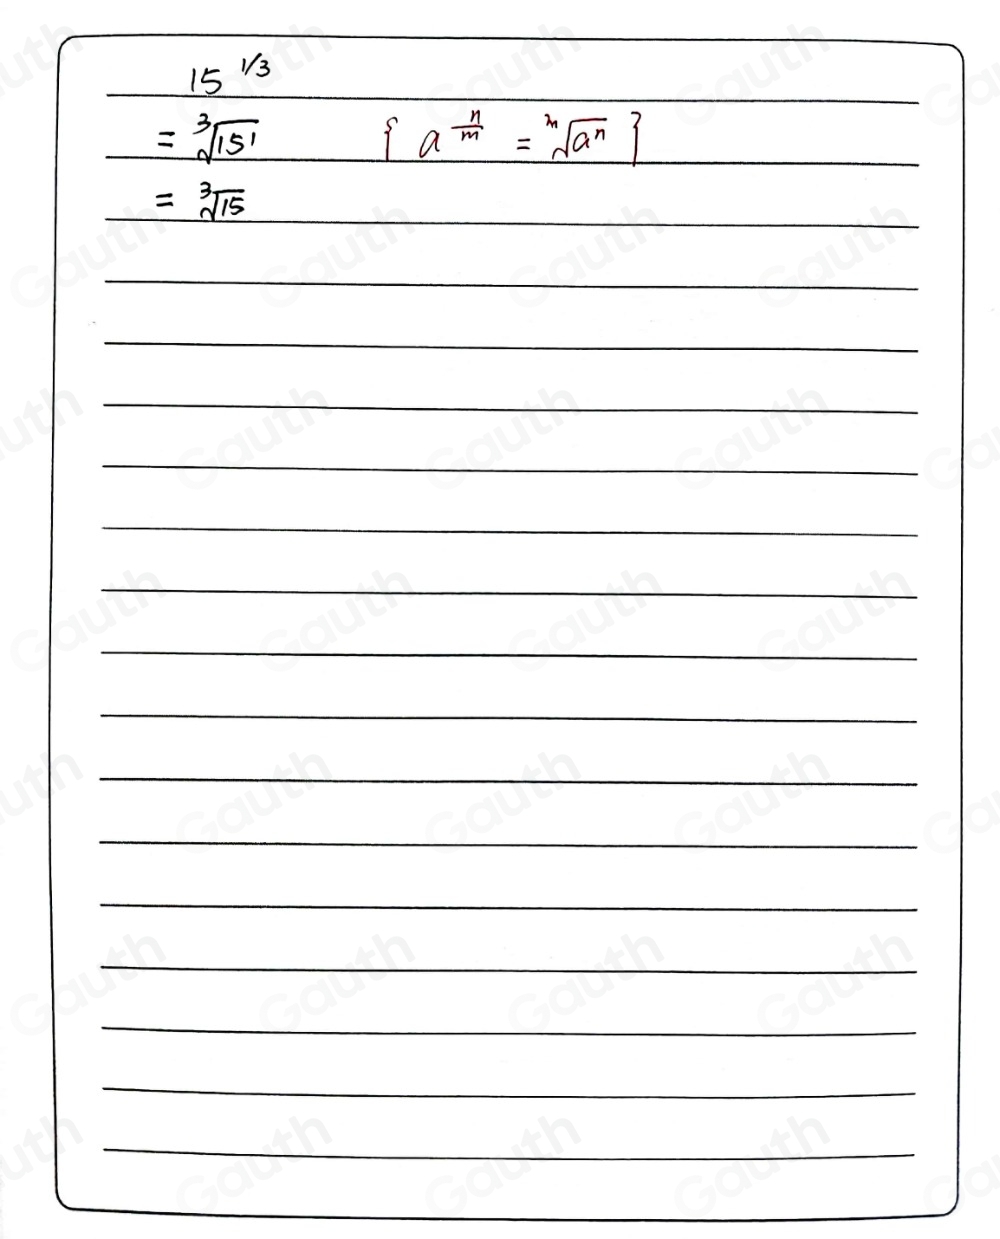 15^{1/3}
= \sqrt[3]{15^1} { a^{\frac{n}{m}} = \sqrt[m]{a^n} }
= \sqrt[3]{15}
Gauth